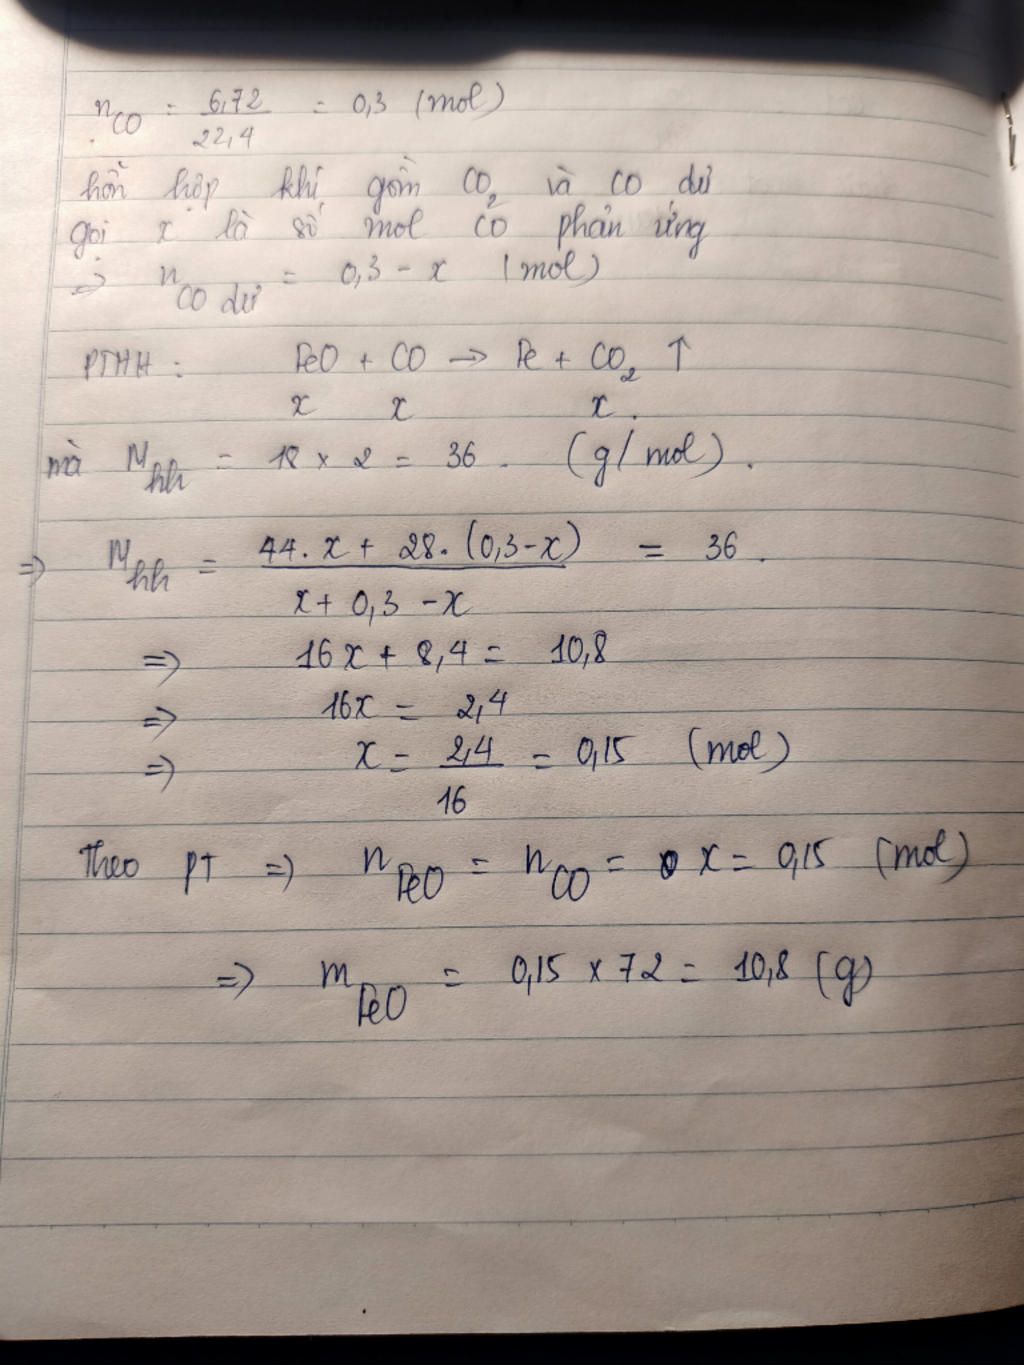 n_CO = 6,72 / 22,4 = 0,3 (mol)
hỗn hợp khí gồm CO₂ và CO dư
gọi x là số mol CO phản ứng
⇒ n_CO dư = 0,3 - x (mol)
PTHH : FeO + CO → Fe + CO₂ ↑
x x x.
mà M_hh = 18 × 2 = 36 . (g/mol).
⇒ M_hh = 44. x + 28. (0,3-x) / x + 0,3 - x = 36 .
⇒ 16x + 8,4 = 10,8
⇒ 16x = 2,4
⇒ x = 2,4 / 16 = 0,15 (mol)
Theo PT ⇒ n_FeO = n_CO = x = 0,15 (mol)
⇒ m_FeO = 0,15 × 72 = 10,8 (g)